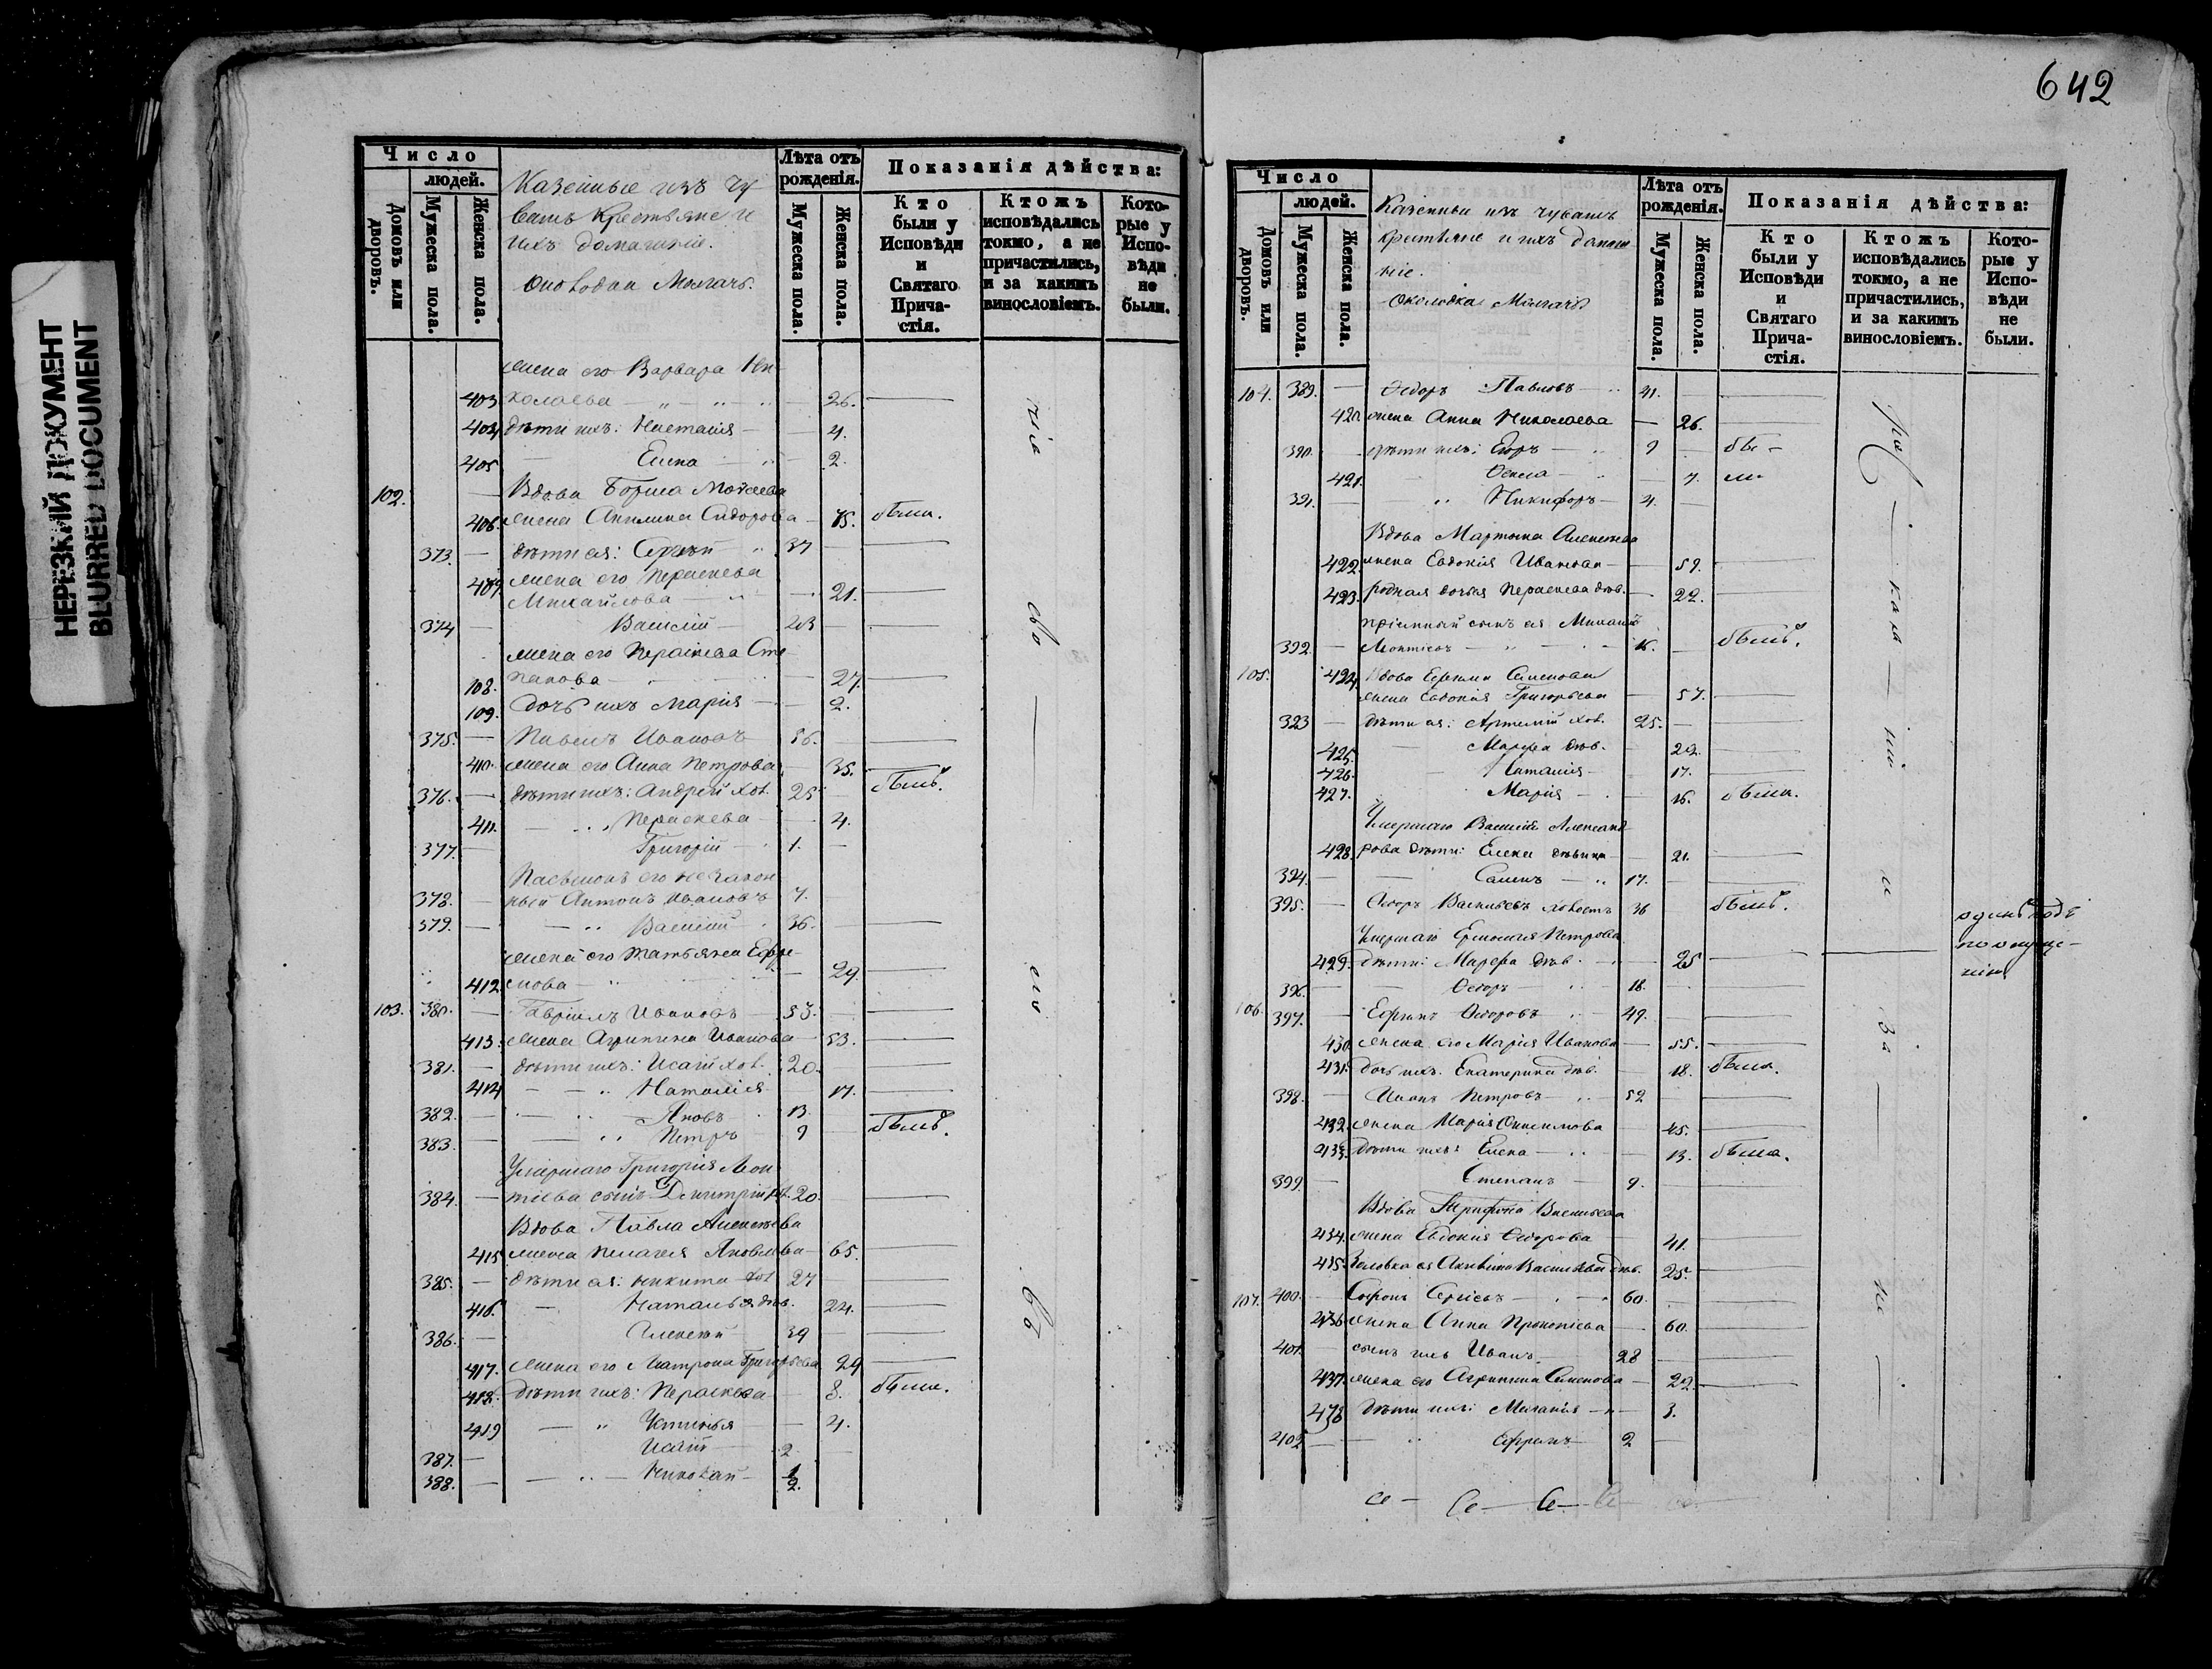 НЕРЕЗКИЙ ДОКУМЕНТ
BLURRED DOCUMENT
Число
людей.
Домовъ или дворовъ.
Мужеска пола.
Женска пола.
Казенные изъ чу
вашъ крестьяне и
ихъ домашніе.
Лѣта отъ рожденія.
Мужеска пола.
Женска пола.
Показанія дѣйства:
Кто были у Исповѣди и Святаго Прича-стія.
Ктожъ исповѣдались токмо, а не причастились, и за какимъ винословіемъ.
Кото-рые у Испо-вѣди не были.
жена его Варвара Ни
403 колаева 26.
404 дѣти ихъ: Настасія 4.
405 Елена 2.
102. Вдова Бориса
406. жена Сидорова 75. была.
373. дѣти ея: Сергѣй 37
жена его Параскева
Михайлова 21.
374 Василій
жена его Параскева Сте
108. панова 27.
109. дочь ихъ Марія 2.
375. Павелъ Ивановъ
410. жена его Анна Петрова 35.
376. дѣти ихъ: Андрей хол. 25 былъ.
411. Параскева 4.
377. Григорій 1.
Пасынокъ его незакон
378. ный Антонъ Ивановъ 7.
379. Василій 36.
жена его Татьяна Ефре
412. мова 29.
103. 380. Гавріилъ Ивановъ 53.
413. жена Агрипина Иванова 53.
381. дѣти ихъ: Исаій хол. 20.
414 Наталія 17.
382. Яковъ 13.
383. Петръ 9 былъ.
Умершаго Григорія Леон
384. тіева сынъ Димитрій хол. 20.
Вдова Павла Алексѣева
415 жена Пелагея Яковлева 65.
385. дѣти ея: Никита хол 27
416. Наталья дѣв. 24.
386. Алексѣй 39
417. жена его Матрона Григорьева 29
418. дѣти ихъ: Параскева 8. были.
419 Устинья 4.
387. Исаій 2
388. Николай
642
Число
людей.
Домовъ или дворовъ.
Мужеска пола.
Женска пола.
Казенные изъ чувашъ
крестьяне и ихъ домаш
ніе.
Околодка
Лѣта отъ рожденія.
Мужеска пола.
Женска пола.
Показанія дѣйства:
Кто были у Исповѣди и Святаго Прича-стія.
Ктожъ исповѣдались токмо, а не причастились, и за какимъ винословіемъ.
Кото-рые у Испо-вѣди не были.
104. 389. Ѳедоръ Павловъ 41.
420. жена Анна Николаева 26.
390. дѣти ихъ: Егоръ 9 бы-
421. 7. ли
391. Никифоръ 4.
Вдова Мартына Алексѣева
422. жена Евдокія Иванова 59.
423. родная дочь ея Параскева дѣв. 22.
пріемный сынъ ея Михаилъ
392. Леонтіевъ 16. былъ.
105. 424. Вдова Ефима Семенова
жена Евдокія Григорьева 57.
323 дѣти ея: Артемій хол. 25.
425. Марфа дѣв. 22.
426. Наталія 17.
427. Марія 16. были.
Умершаго Василія Александ
428. рова дѣти: Елена дѣвица 21.
394. Семенъ 17.
395. Ѳедоръ Васильевъ холостъ 36 былъ.
одинъ годъ
по опуще-
нію
Умершаго Ермолая Петрова
429. дѣти: Марфа дѣв. 25
396. Ѳедоръ 18.
106. 397. Ефимъ Ѳедоровъ 49.
430. жена его Марія Иванова 55.
431. дочь ихъ Екатерина дѣв. 18. была.
398. Иванъ Петровъ 52
432. жена Марія Онисимова 45.
433. дѣти ихъ: Елена 13. была.
399. Степанъ 9.
Вдова Трифона Васильева
434. жена Евдокія Ѳедорова 41.
435. Золовка ея Акилина Васильева дѣв. 25.
107. 400. Софронъ Сергіевъ 60.
436 жена Анна Прокопіева 60.
401. сынъ ихъ Иванъ 28
437. жена его Агрипина Семенова 22.
438 дѣти ихъ: Меланія 3.
402 Ефремъ 2